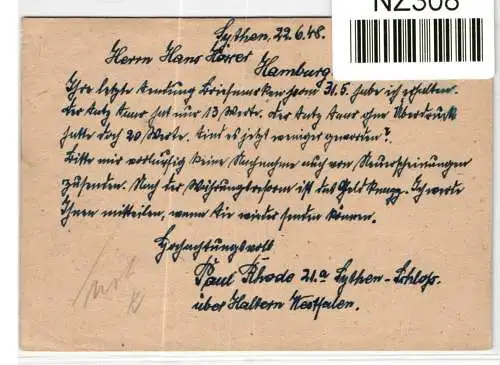 NZ308
Sythen, 22.6.48.
Herrn Hans Körver
Hamburg.
Ihre letzte Sendung Briefmarken vom 31.5. habe ich erhalten.
Der Satz Saar hat nur 13 Werte. Der Satz Saar ohne Überdruck
hatte doch 20 Werte. Sind es jetzt weniger geworden?
Bitte mir vorläufig keine Nachnahme auch von Neuerscheinungen
zusenden. Nach der Währungsreform ist das Geld knapp. Ich werde
Ihnen mitteilen, wann Sie wieder senden können.
Hochachtungsvoll
Paul Rhode 21.a Sythen-Schloß.
über Haltern Westfalen.